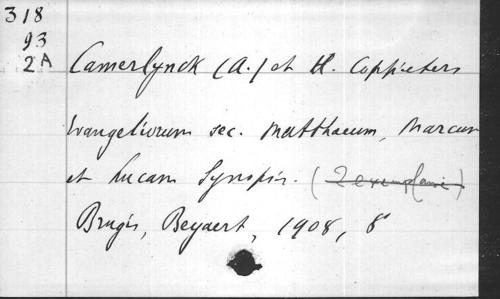 318
93
2A
Camerlynck (A.) et H. Coppieters
Evangeliorum sec. Matthaeum, Marcum
et Lucam Synopsis. (2 exemplaires)
Brugis, Beyaert, 1908, 8°